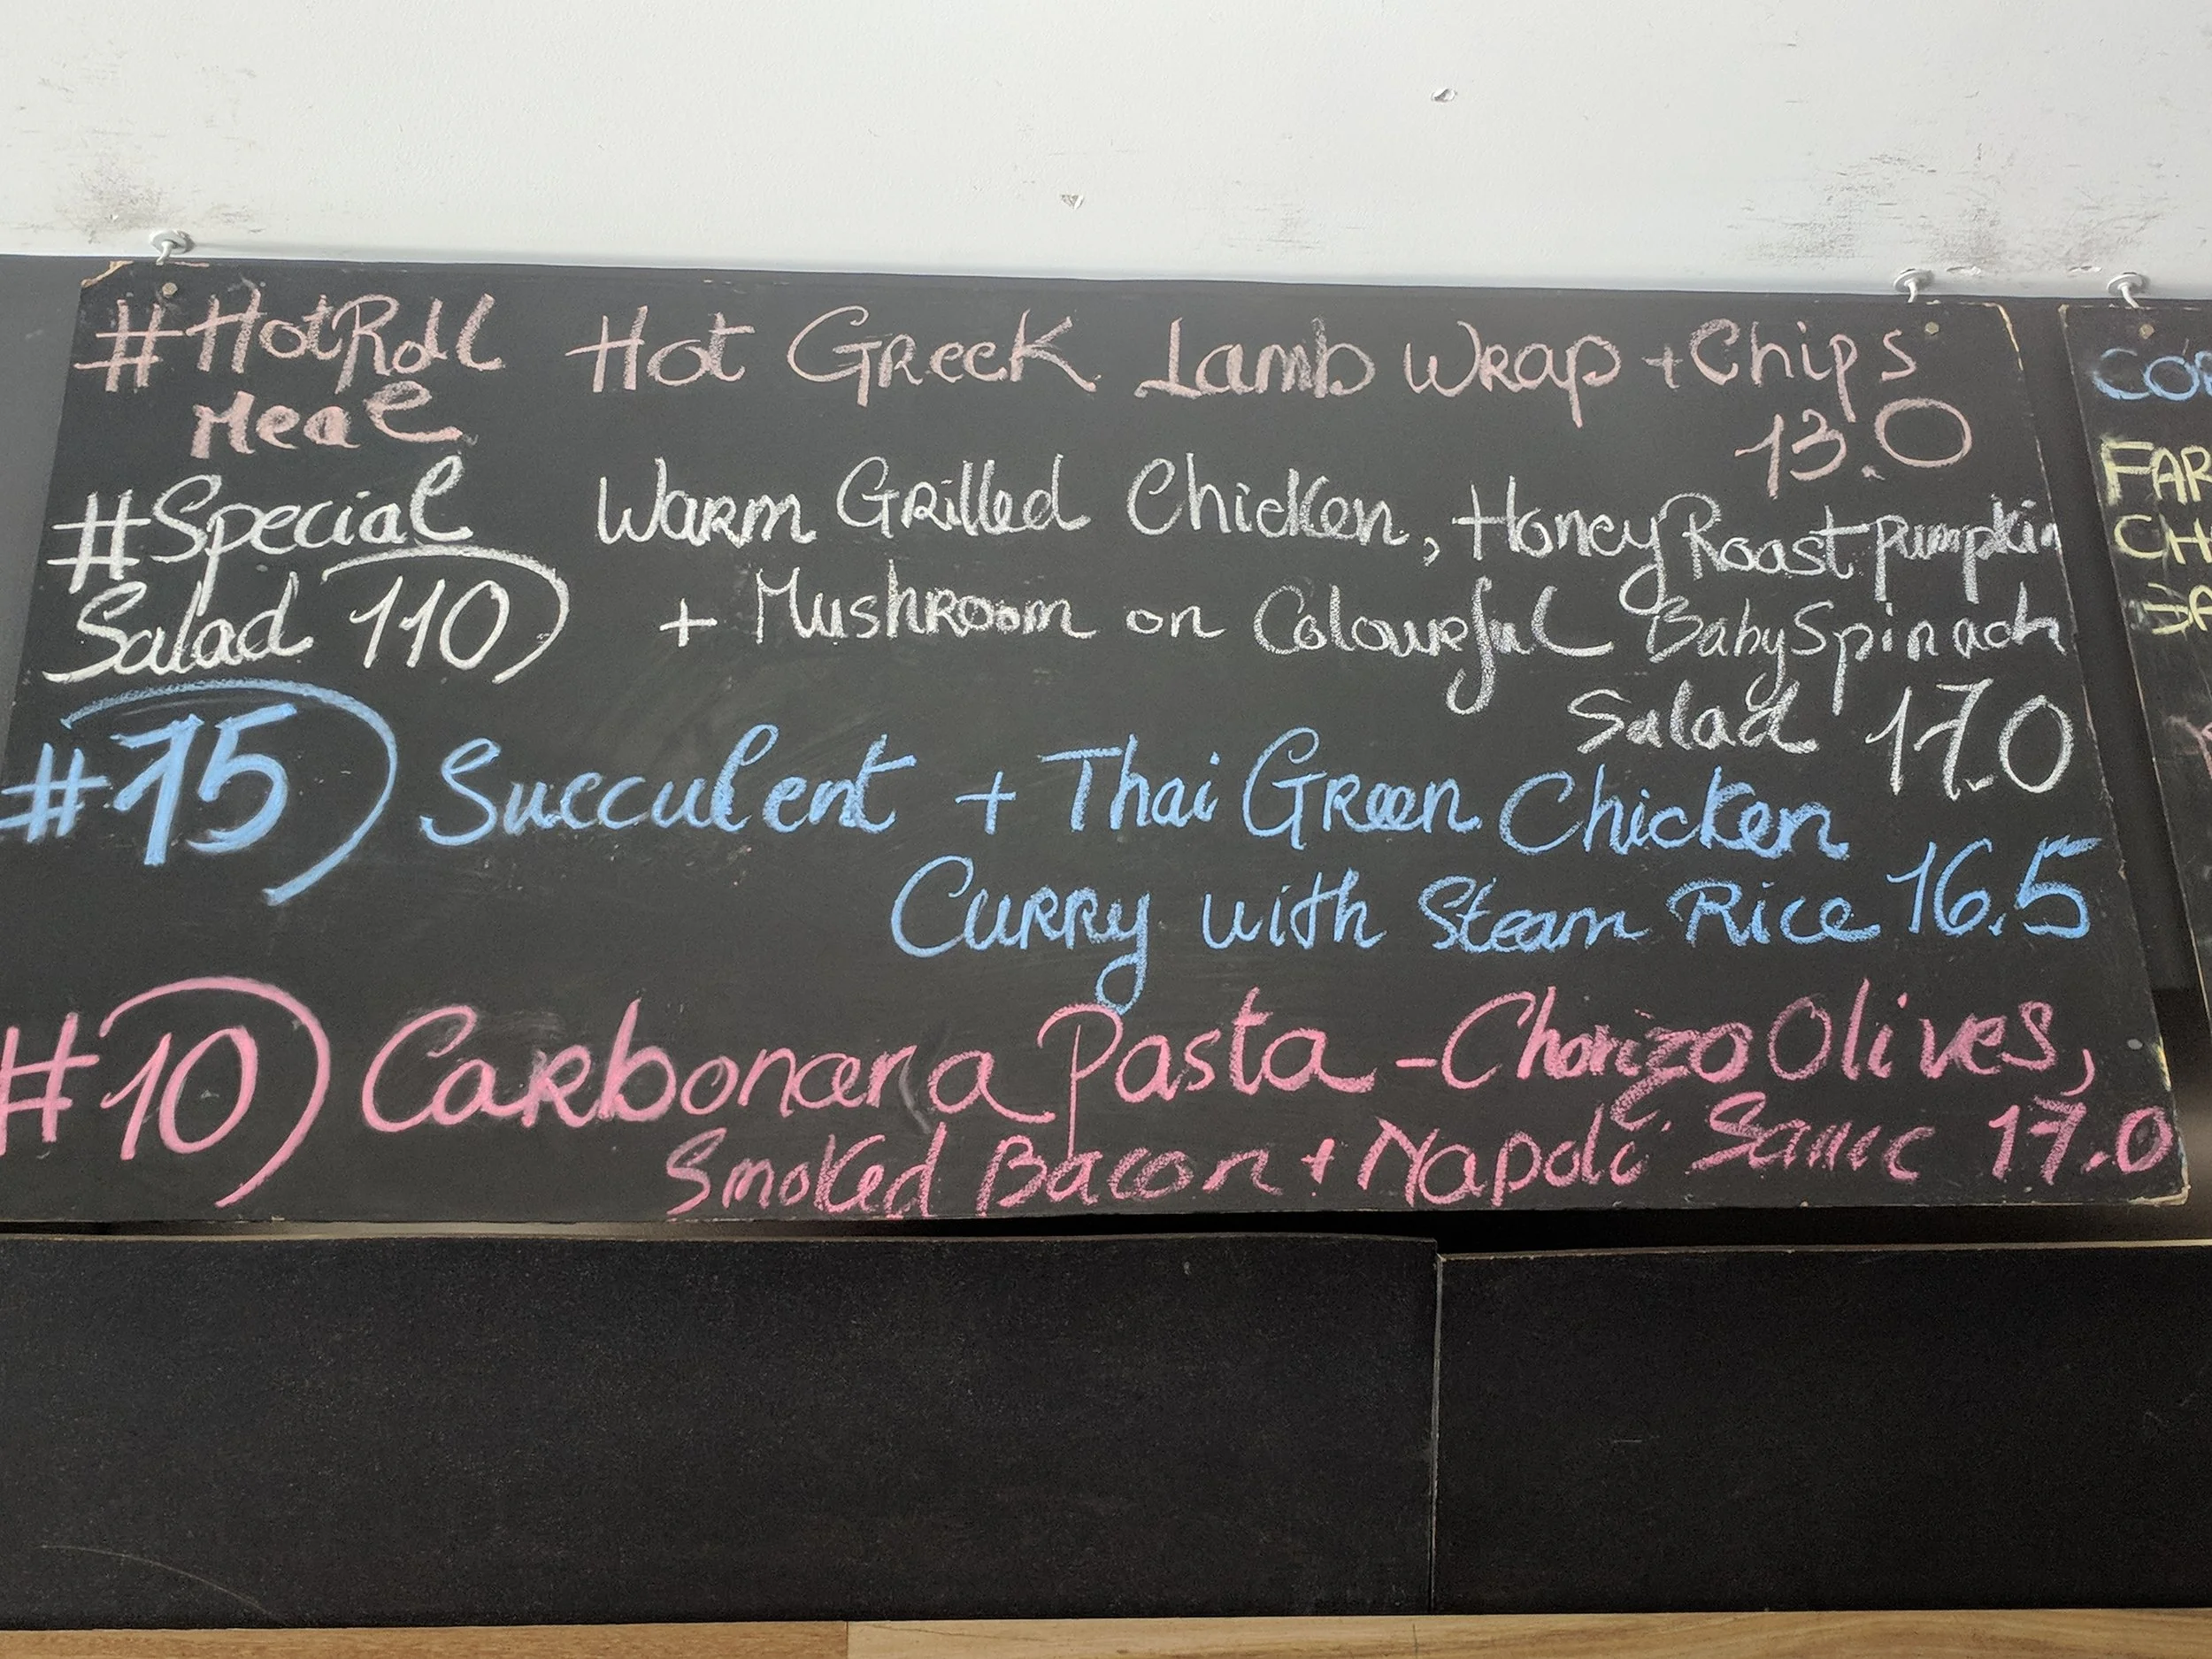 #HotRoll Hot Greek Lamb Wrap + Chips
Meal 13.0
#Special Warm Grilled Chicken, Honey Roast Pumpkin
Salad 110) + Mushroom on Colourful Baby Spinach
Salad 17.0
#75) Succulent + Thai Green Chicken
Curry with Steam Rice 16.5
#10) Carbonara Pasta - Chorizo Olives,
Smoked Bacon + Napoli Sauce 17.0